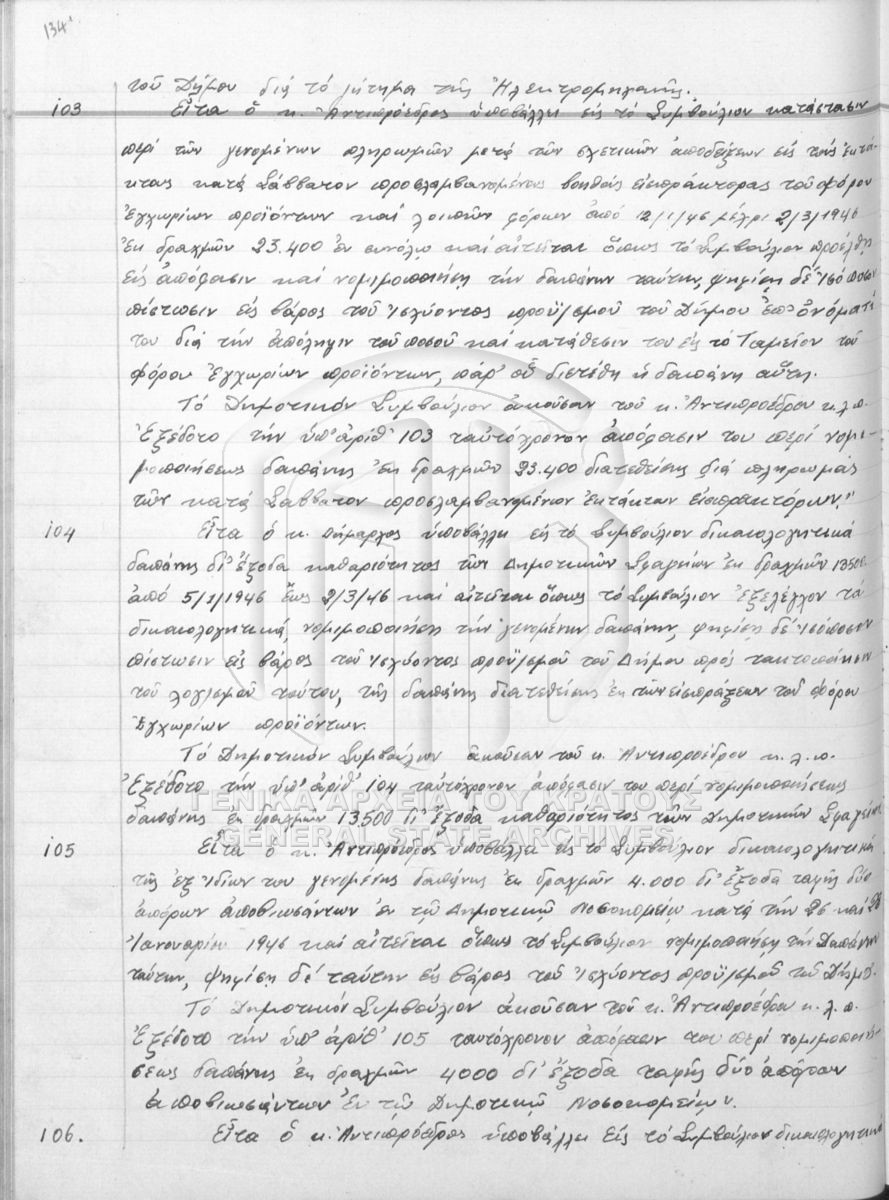 134
τοῦ Δήμου διά τό ζήτημα τῆς Ἠλεκτρομηχανῆς.
103 Εἶτα ὁ κ. Ἀντιπρόεδρος ὑποβάλλει εἰς τό Συμβούλιον κατάστασιν
περί τῶν γενομένων πληρωμῶν μετά τῶν σχετικῶν ἀποδείξεων εἰς τούς ἐκτά-
κτους κατά Σάββατον προσλαμβανομένους βοηθούς εἰσπράκτορας τοῦ φόρου
Ἐγχωρίων προϊόντων καί λοιπῶν φόρων ἀπό 2/1/46 μέχρι 2/3/1946
ἐκ δραχμῶν 23.400 ἐν συνόλῳ καί αἰτεῖται ὅπως τό Συμβούλιον προέλθῃ
εἰς ἀπόφασιν καί νομιμοποιήσῃ τήν δαπάνην ταύτην, ψηφίσῃ δέ ἰσόποσον
πίστωσιν εἰς βάρος τοῦ ἰσχύοντος προϋ/σμοῦ τοῦ Δήμου ἐπ' ὀνόματί
του διά τήν ἀπόληψιν τοῦ ποσοῦ καί κατάθεσιν του εἰς τό Ταμεῖον τοῦ
φόρου Ἐγχωρίων προϊόντων, παρ' οὗ διετέθη ἡ δαπάνη αὕτη.
Τό Δημοτικόν Συμβούλιον ἀκοῦσαν τοῦ κ. Ἀντιπροέδρου κ.λ.π.
Ἐξέδοτο τήν ὑπ' ἀριθ' 103 ταὐτόχρονον ἀπόφασιν του περί νομι-
μοποιήσεως δαπάνης ἐκ δραχμῶν 23.400 διατεθείσης διά πληρωμάς
τῶν κατά Σάββατον προσλαμβανομένων ἐκτάκτων εἰσπρακτόρων."
104 Εἶτα ὁ κ. Δήμαρχος ὑποβάλλει εἰς τό Συμβούλιον δικαιολογητικά
δαπάνης δι' ἔξοδα καθαριότητος τῶν Δημοτικῶν Σφαγείων ἐκ δραχμῶν 13500
ἀπό 5/1/1946 ἕως 2/3/46 καί αἰτεῖται ὅπως τό Συμβούλιον ἐξελέγξον τά
δικαιολογητικά, νομιμοποιήσῃ τήν γενομένην δαπάνην, ψηφίσῃ δέ ἰσόποσον
πίστωσιν εἰς βάρος τοῦ ἰσχύοντος προϋ/σμοῦ τοῦ Δήμου πρός τακτοποίησιν
τοῦ λογ/σμοῦ τούτου, τῆς δαπάνης διατεθείσης ἐκ τῶν εἰσπράξεων τοῦ φόρου
Ἐγχωρίων προϊόντων.
Τό Δημοτικόν Συμβούλιον ἀκοῦσαν τοῦ κ. Ἀντιπροέδρου κ.λ.π.
Ἐξέδοτο τήν ὑπ' ἀριθ' 104 ταὐτόχρονον ἀπόφασιν του περί νομιμοποιήσεως
δαπάνης ἐκ δραχμῶν 13.500 δι' ἔξοδα καθαριότητος τῶν Δημοτικῶν Σφαγείων
ΓΕΝΙΚΑ ΑΡΧΕΙΑ ΤΟΥ ΚΡΑΤΟΥΣ
GENERAL STATE ARCHIVES
105 Εἶτα ὁ κ. Ἀντιπρόεδρος ὑποβάλλει εἰς τό Συμβούλιον δικαιολογητικά
τῆς ἐξ ἰδίων του γενομένης δαπάνης ἐκ δραχμῶν 4.000 δι' ἔξοδα ταφῆς δύο
ἀπόρων ἀποβιωσάντων ἐν τῷ Δημοτικῷ Νοσοκομείῳ κατά τήν 26 καί
Ἰανουαρίου 1946 καί αἰτεῖται ὅπως τό Συμβούλιον νομιμοποιήσῃ τήν δαπάνην
ταύτην, ψηφίσῃ δέ ταύτην εἰς βάρος τοῦ ἰσχύοντος προϋ/σμοῦ τοῦ Δήμου.
Τό Δημοτικόν Συμβούλιον ἀκοῦσαν τοῦ κ. Ἀντιπροέδρου κ.λ.π.
Ἐξέδοτο τήν ὑπ' ἀριθ' 105 ταυτόχρονον ἀπόφασιν του περί νομιμοποιή-
σεως δαπάνης ἐκ δραχμῶν 4000 δι' ἔξοδα ταφῆς δύο ἀπόρων
ἀποβιωσάντων ἐν τῷ Δημοτικῷ Νοσοκομείῳ.
106. Εἶτα ὁ κ. Ἀντιπρόεδρος ὑποβάλλει εἰς τό Συμβούλιον δικαιολογητικά